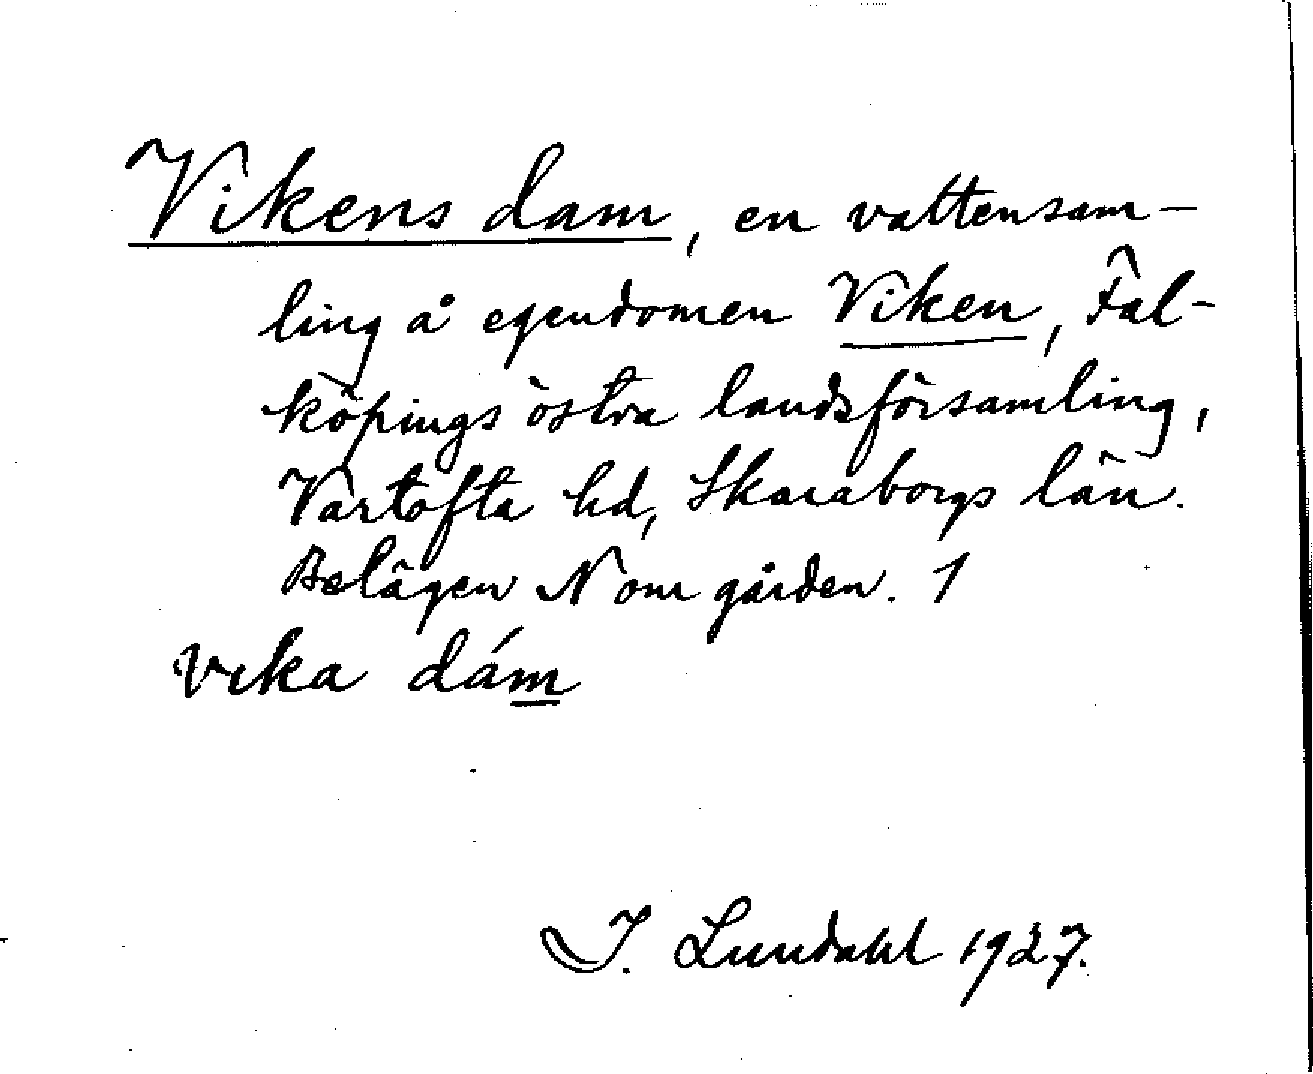 Vikens dam, en vattensam-
ling å egendomen Viken, Fal-
köpings östra landsförsamling,
Vartofta hd, Skaraborgs län.
Belägen N om gården. 1
vika dám
I. Lundahl 1927.